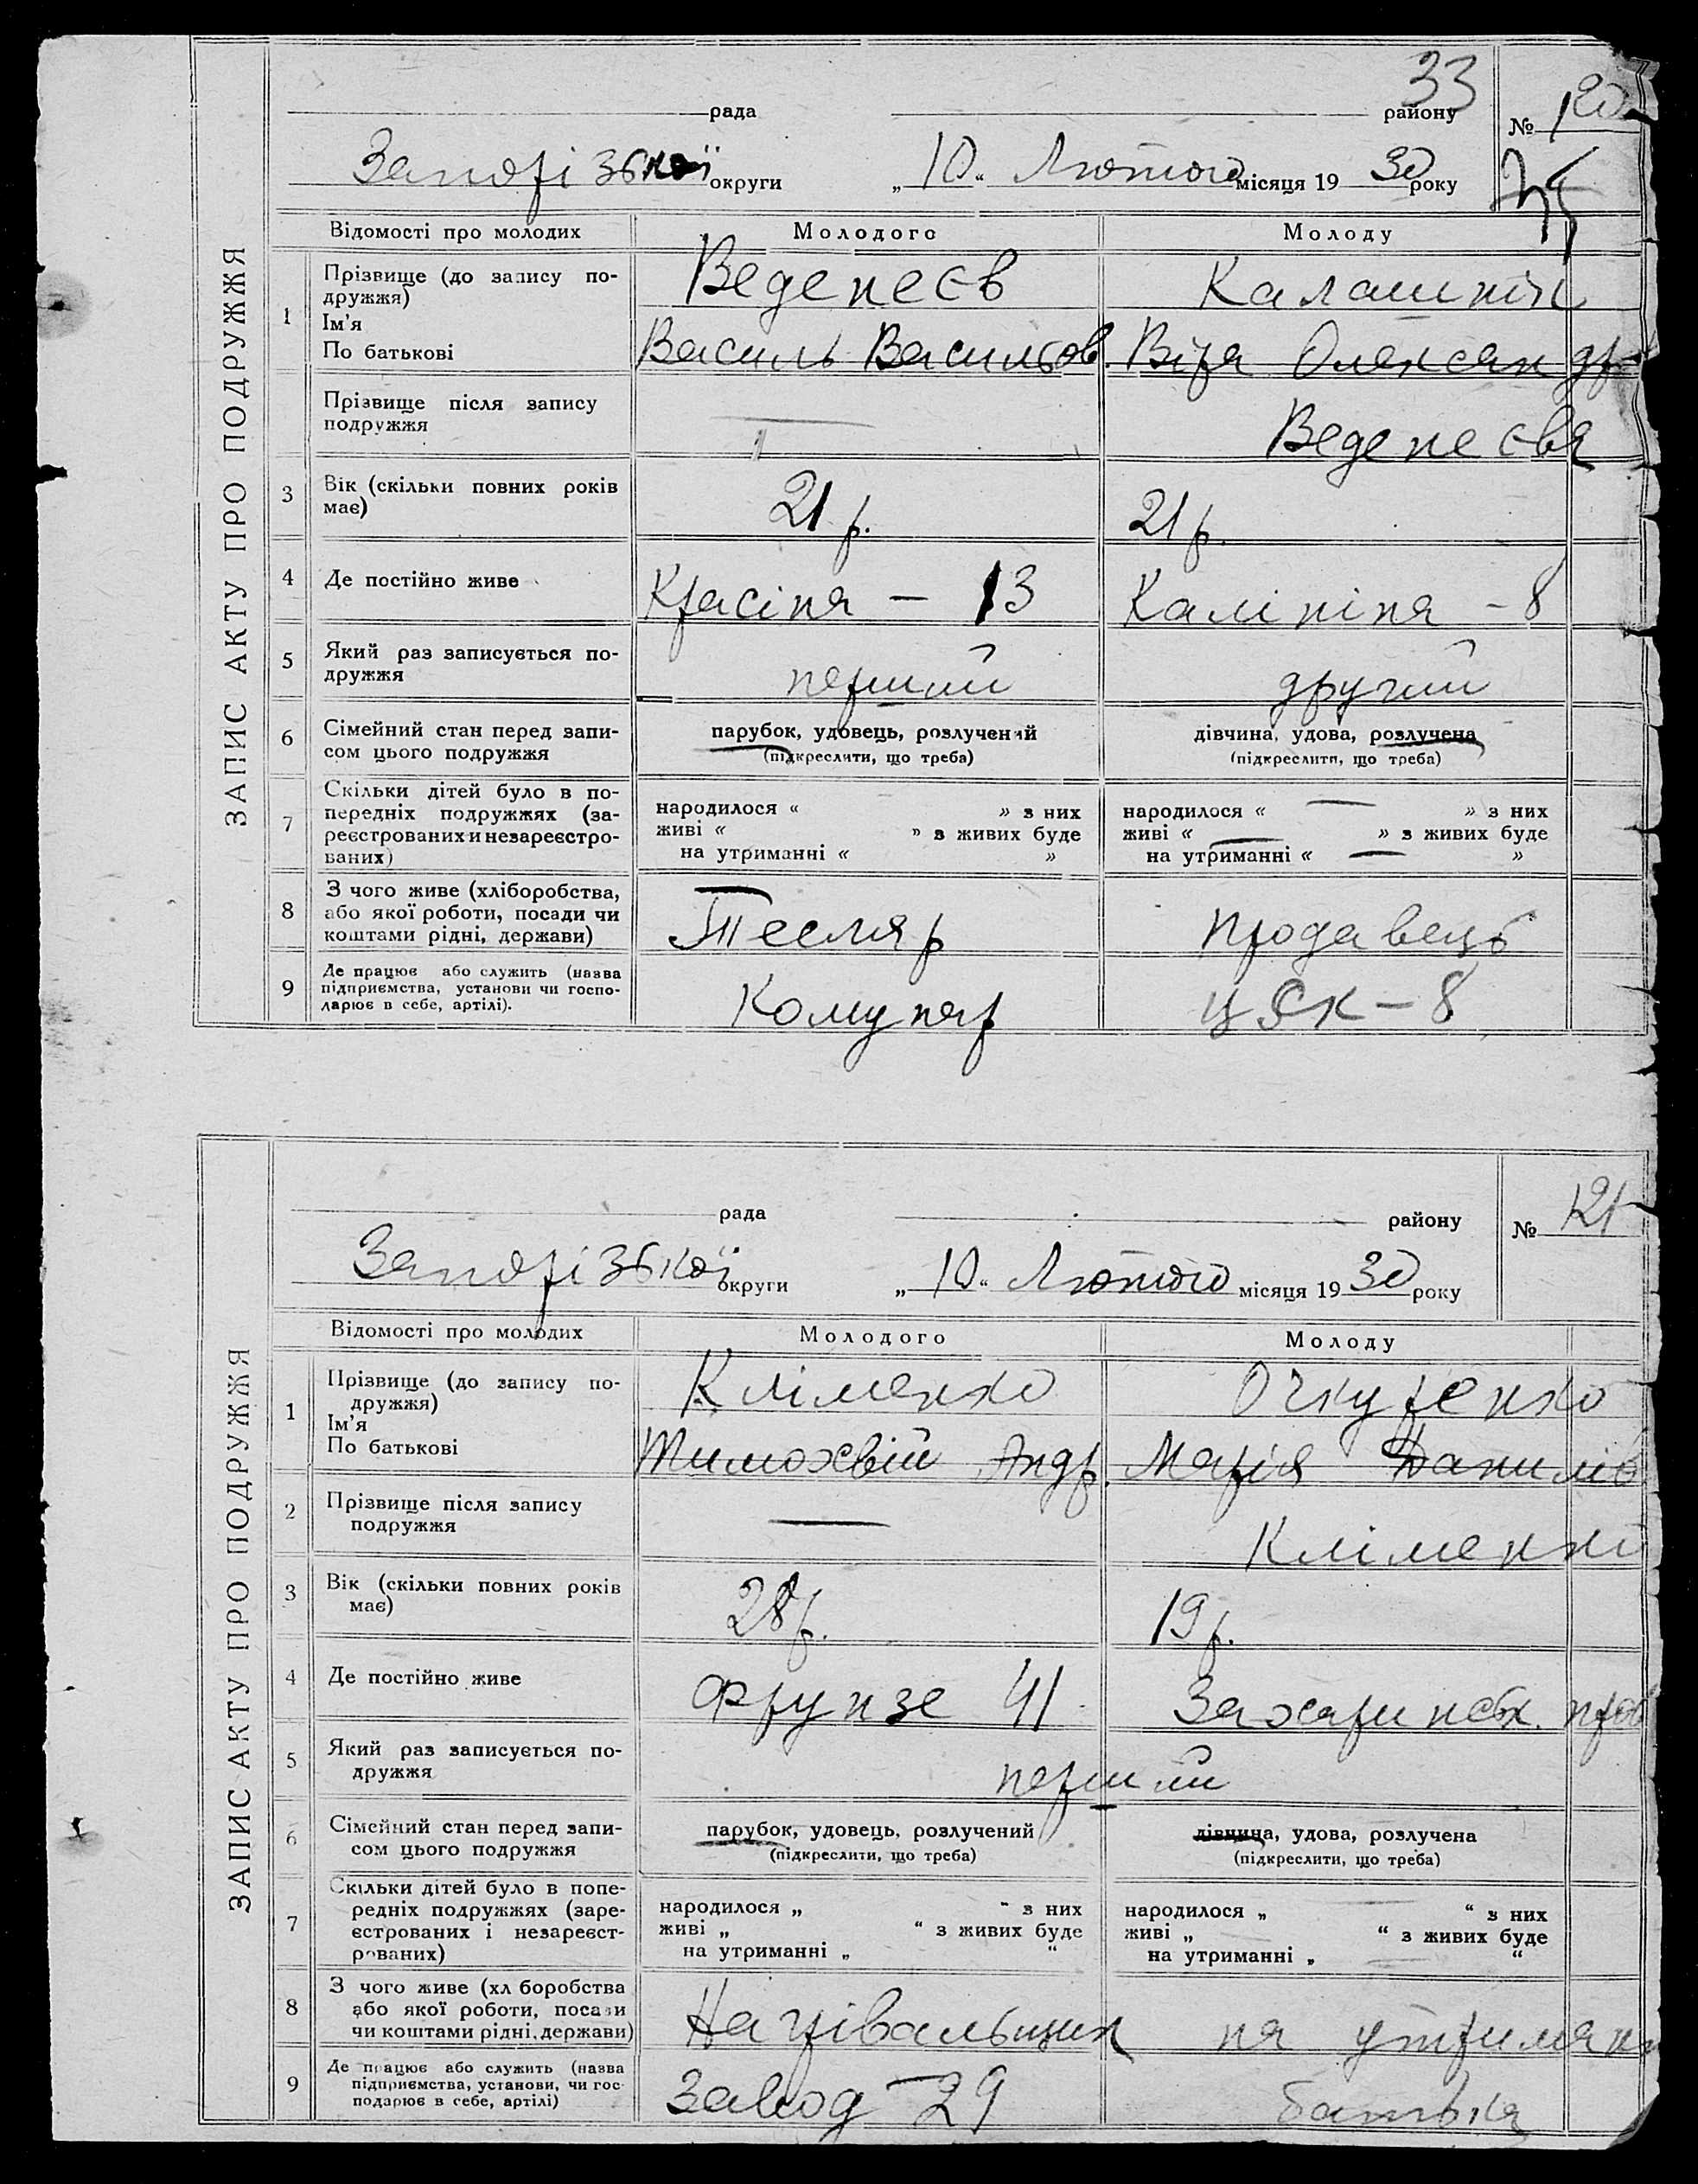 33
рада району № 120
Запорізької округи „ 10 “ Лютого місяця 19 30 року
35
ЗАПИС АКТУ ПРО ПОДРУЖЖЯ
Відомості про молодих Молодого Молоду
1 Прізвище (до запису по-
дружжя)
Ведепеєв Калашнік
Ім'я
По батькові
Василь Васильов. Віра Олександр
Прізвище після запису
подружжя
— Ведепеєва
3 Вік (скільки повних років
має)
21 р. 21 р.
4 Де постійно живе Красіна — 13 Калініна - 8
5 Який раз записується по-
дружжя
перший другий
6 Сімейний стан перед запи-
сом цього подружжя
парубок, удовець, розлучений дівчина, удова, розлучена
(підкреслити, що треба) (підкреслити, що треба)
7 Скільки дітей було в по-
передніх подружжях (за-
реєстрованих и незареєстро-
ваних)
народилося « » з них народилося « — » з них
живі « » з живих буде живі « — » з живих буде
на утриманні « » на утриманні « — »
8 З чого живе (хліборобства,
або якої роботи, посади чи
коштами рідні, держави)
Тесляр продавець
9 Де працює або служить (назва
підприємства, установи чи госпо-
дарює в себе, артілі).
Комунар ЦРК - 8
рада району № 121
Запорізької округи „ 10 “ Лютого місяця 19 30 року
ЗАПИС АКТУ ПРО ПОДРУЖЖЯ
Відомості про молодих Молодого Молоду
1 Прізвище (до запису по-
дружжя)
Кліменко Очкуренко
Ім'я
По батькові
Тимохвій Андр. Марія Данилів
2 Прізвище після запису
подружжя
— Кліменко
3 Вік (скільки повних років
має)
28 р. 19 р.
4 Де постійно живе Фрунзе 41 Захаринськ. пров
5 Який раз записується по-
дружжя
перший
6 Сімейний стан перед запи-
сом цього подружжя
парубок, удовець, розлучений дівчина, удова, розлучена
(підкреслити, що треба) (підкреслити, що треба)
7 Скільки дітей було в попе-
редніх подружжях (заре-
єстрованих і незареєст-
рованих)
народилося „ “ з них народилося „ — “ з них
живі „ “ з живих буде живі „ — “ з живих буде
на утриманні „ “ на утриманні „ — “
8 З чого живе (хл боробства
або якої роботи, посади
чи коштами рідні, держави)
Нагрівальщик на утриман
9 Де працює або служить (назва
підприємства, установи, чи гос-
подарює в себе, артілі)
Завод 29 батька